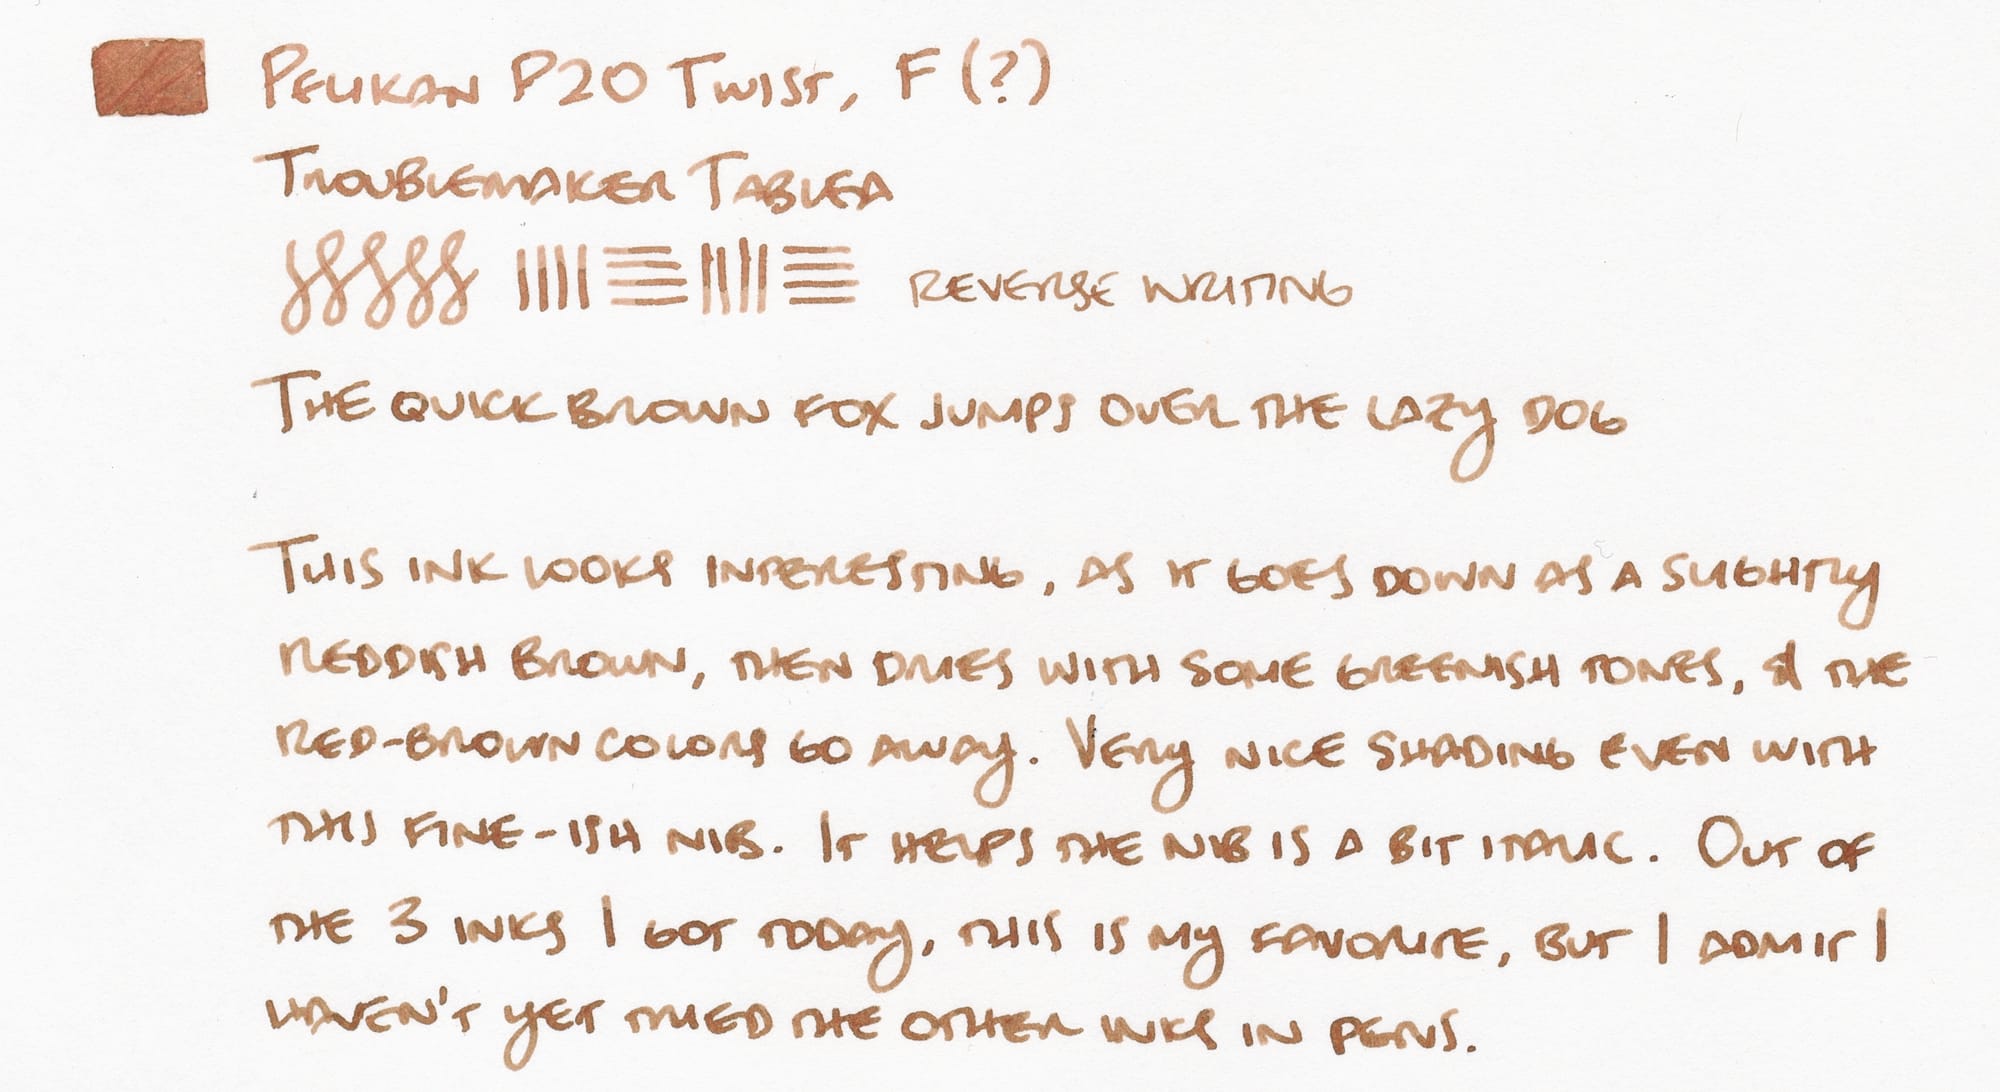 Pelikan P20 Twist, F (?)
Troublemaker Tablea
reverse writing
The quick brown fox jumps over the lazy dog
This ink looks interesting, as it goes down as a slightly
reddish brown, then dries with some greenish tones, & the
red-brown colors go away. Very nice shading even with
this fine-ish nib. It helps the nib is a bit italic. Out of
the 3 inks I got today, this is my favorite, but I admit I
haven't yet tried the other inks in pens.